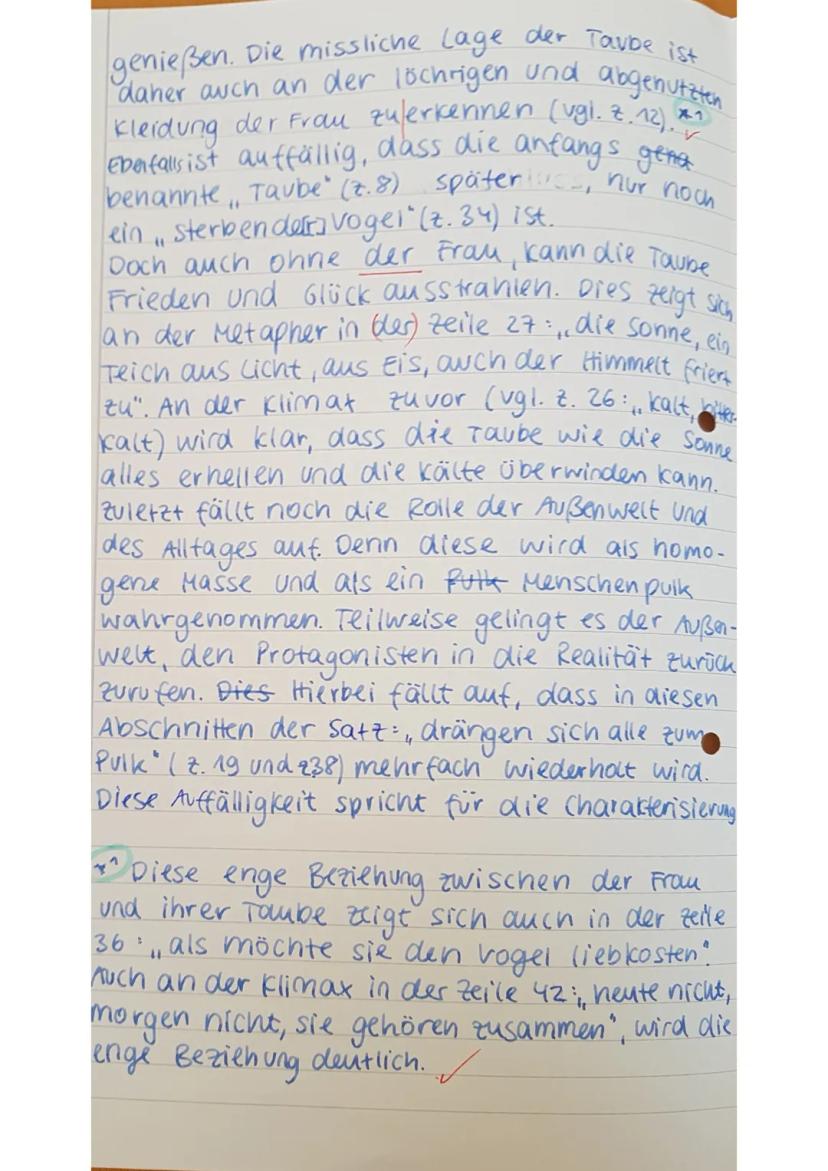 genießen. Die missliche Lage der Taube ist
daher auch an der löchrigen und abgenutzten
Kleidung der Frau zu erkennen (vgl. Z. 12). *1
Ebenfalls ist auffällig, dass die anfangs gena
benannte „Taube" (Z.8) später, nur noch
ein „sterbende[r] Vogel" (Z. 34) ist.
Doch auch ohne der Frau, kann die Taube
Frieden und Glück ausstrahlen. Dies zeigt sich
an der Metapher in (der) Zeile 27: „die Sonne, ein
Teich aus Licht, aus Eis, auch der Himmelt friert
zu". An der Klimax zuvor (vgl. Z. 26: „kalt, bitter-
kalt) wird klar, dass die Taube wie die Sonne
alles erhellen und die Kälte überwinden kann.
Zuletzt fällt noch die Rolle der Außenwelt und
des Alltages auf. Denn diese wird als homo-
gene Masse und als ein Pulk Menschenpulk
wahrgenommen. Teilweise gelingt es der Außen-
welt, den Protagonisten in die Realität zurück
zurufen. Dies Hierbei fällt auf, dass in diesen
Abschnitten der Satz: „drängen sich alle zum
Pulk" (Z. 19 und Z38) mehrfach wiederholt wird.
Diese Auffälligkeit spricht für die Charakterisierung
*1 Diese enge Beziehung zwischen der Frau
und ihrer Taube zeigt sich auch in der Zeile
36: „als möchte sie den Vogel liebkosten".
Auch an der Klimax in der Zeile 42: „heute nicht,
morgen nicht, sie gehören zusammen", wird die
enge Beziehung deutlich.